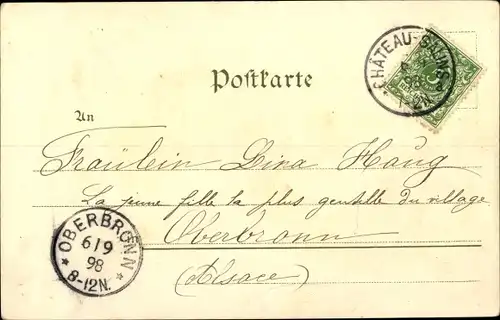 CHÂTEAU-SALINS
98
7-12N.
Postkarte
An
Fräulein Lina Haug
La jeune fille la plus gentille du village
Oberbronn
(Alsace)
OBERBRONN
6/9
98
8-12N.